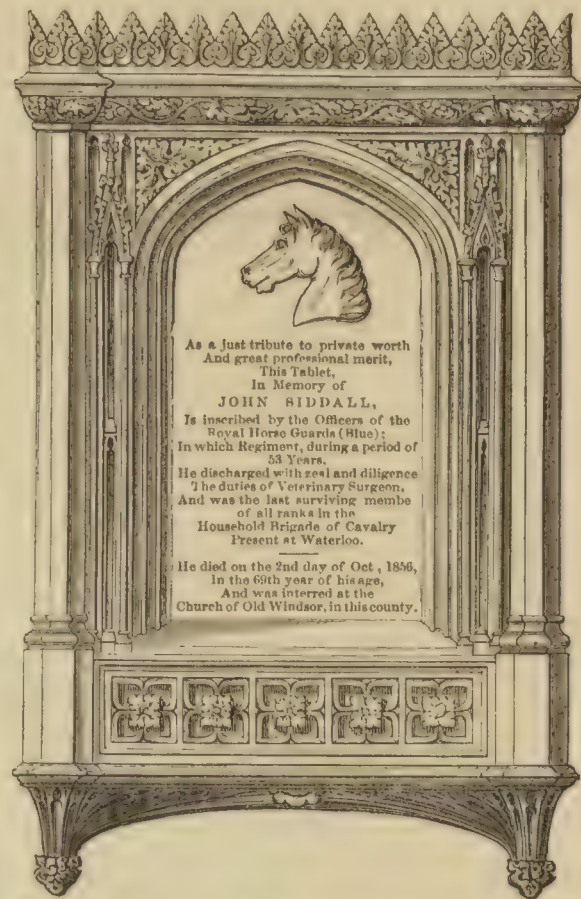 As a just tribute to private worth
And great professional merit,
This Tablet,
In Memory of
JOHN SIDDALL,
Is inscribed by the Officers of the
Royal Horse Guards (Blue);
In which Regiment, during a period of
53 Years,
He discharged with zeal and diligence
The duties of Veterinary Surgeon,
And was the last surviving membe
of all ranks in the
Household Brigade of Cavalry
Present at Waterloo.
He died on the 2nd day of Oct, 1856,
In the 69th year of his age,
And was interred at the
Church of Old Windsor, in this county.